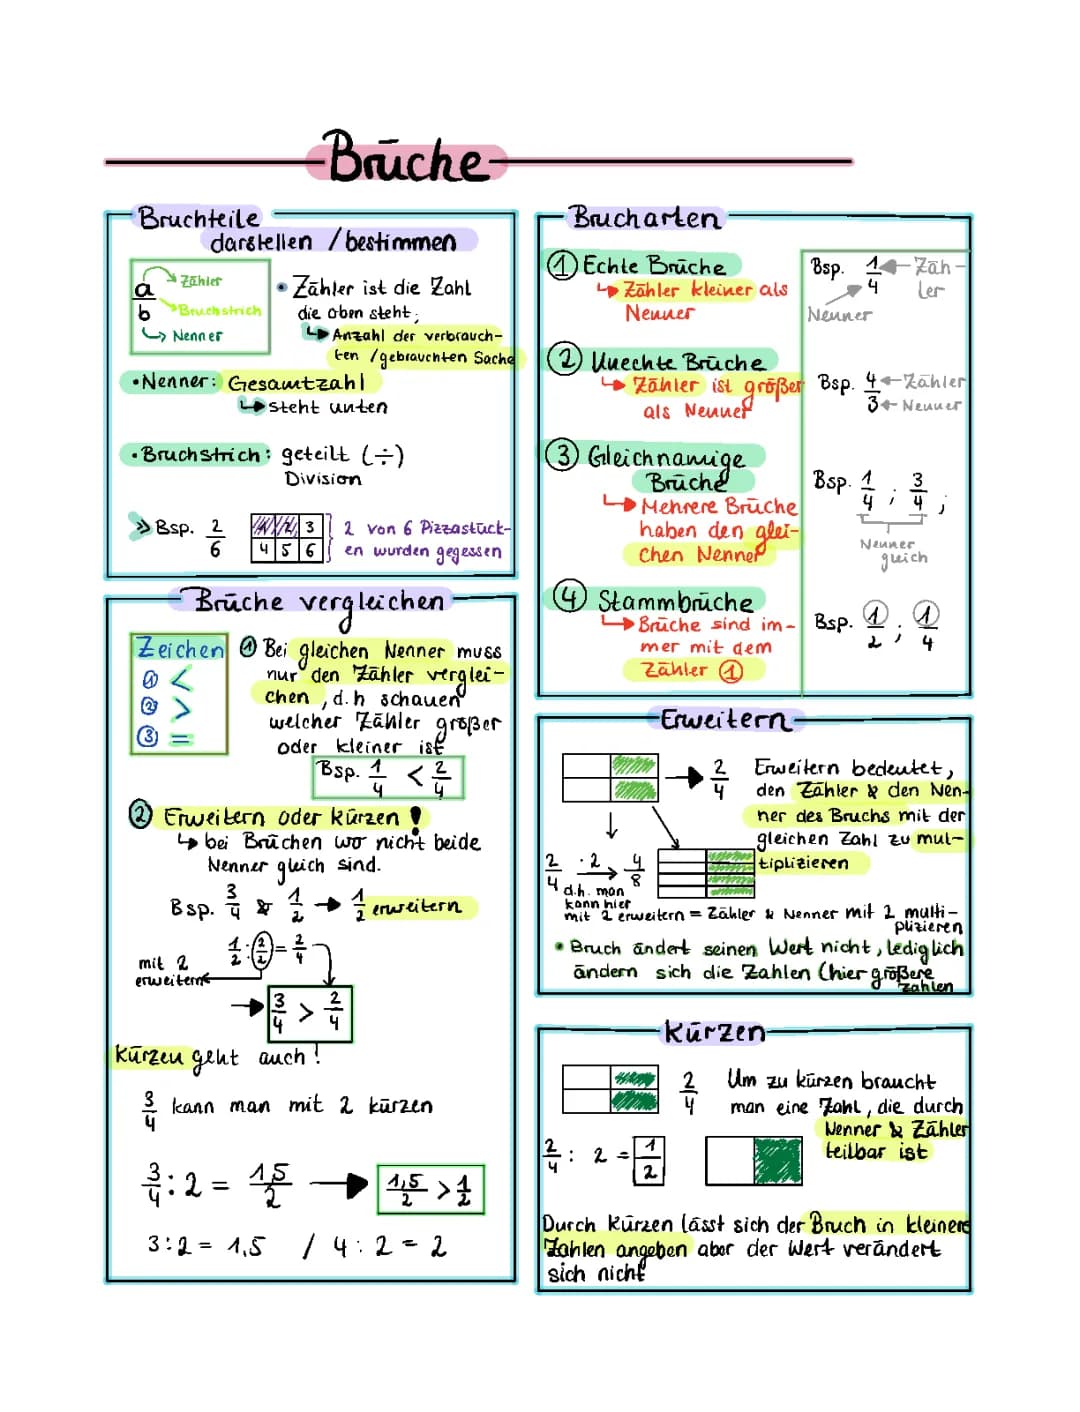 Brüche
Bruchteile
darstellen / bestimmen
a
b
Zähler
Bruchstrich
Nenner
• Zähler ist die Zahl
die oben steht;
↳ Anzahl der verbrauch-
ten / gebrauchten Sache
• Nenner: Gesamtzahl
↳ steht unten
• Bruchstrich: geteilt (÷)
Division
» Bsp. 2/6
1 2 3
4 5 6
2 von 6 Pizzastück-
en wurden gegessen
Brüche vergleichen
Zeichen
① <
② >
③ =
① Bei gleichen Nenner muss
nur den Zähler verglei-
chen, d.h schauen
welcher Zähler größer
oder kleiner ist
Bsp. 1/4 < 2/4
② Erweitern oder kürzen !
↳ bei Brüchen wo nicht beide
Nenner gleich sind.
Bsp. 3/4 & 1/2 → 1/2 erweitern
1/2 : 2/2 = 2/4
mit 2
erweitern
→ 3/4 > 2/4
Kürzen geht auch !
3/4 kann man mit 2 kürzen
3/4 : 2 = 1,5/2 → 1,5/2 > 1/2
3:2 = 1,5 / 4 : 2 = 2
Brucharten
① Echte Brüche
↳ Zähler kleiner als
Nenner
Bsp. 1/4 ← Zäh-
ler
Nenner
② Unechte Brüche
↳ Zähler ist größer
als Nenner
Bsp. 4 ← Zähler
3 ← Nenner
③ Gleichnamige
Brüche
↳ Mehrere Brüche
haben den glei-
chen Nenner
Bsp. 1/4 ; 3/4 ;
Nenner
gleich
④ Stammbrüche
↳ Brüche sind im-
mer mit dem
Zähler ①
Bsp. 1/2 ; 1/4
Erweitern
→ 2/4
Erweitern bedeutet,
den Zähler & den Nen-
ner des Bruchs mit der
gleichen Zahl zu mul-
tiplizieren
2/4 ·2 → 4/8
d.h. man
kann hier
mit 2 erweitern = Zähler & Nenner mit 2 multi-
plizieren
• Bruch ändert seinen Wert nicht, lediglich
ändern sich die Zahlen (hier größere
Zahlen
Kürzen
2/4
Um zu kürzen braucht
man eine Zahl, die durch
Nenner & Zähler
teilbar ist
2/4 : 2 = 1/2
Durch Kürzen lässt sich der Bruch in kleinere
Zahlen angeben aber der Wert verändert
sich nicht